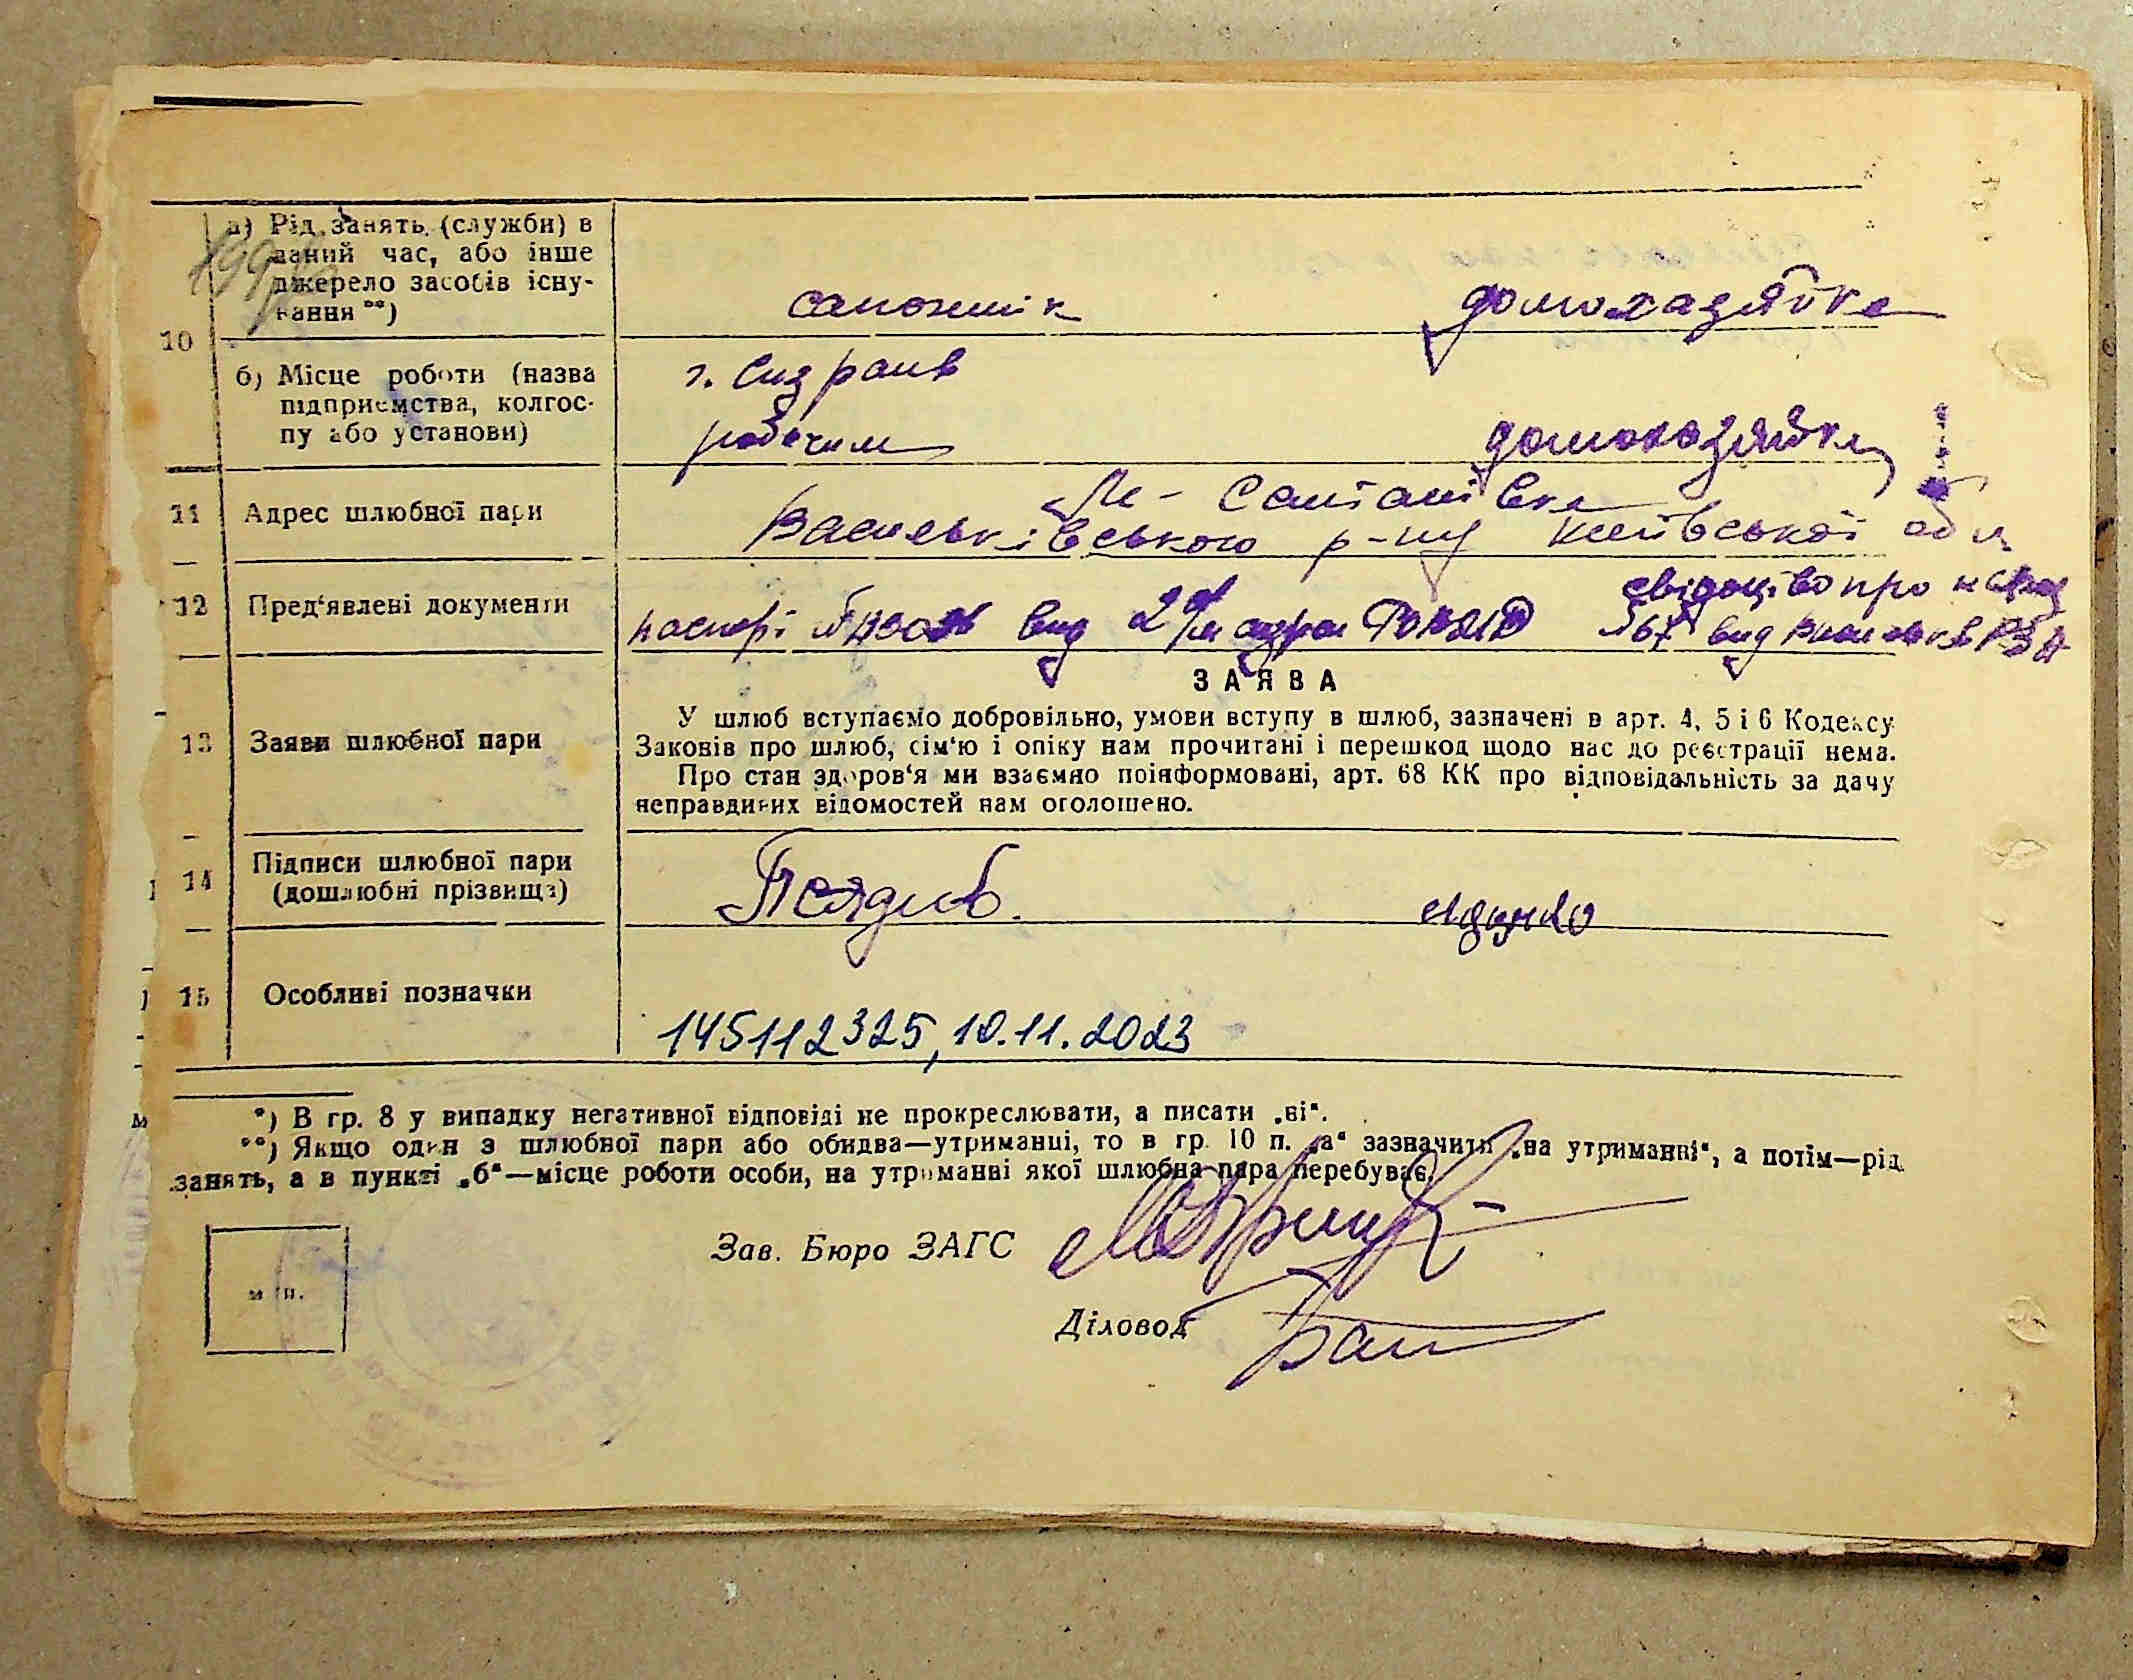 а) Рід занять (служби) в
даний час, або інше
джерело засобів існу-
вання **)
сапожнік
домохазяйка
10
б) Місце роботи (назва
підприємства, колгос-
пу або установи)
г. Сизрань
робочим
домохазяйка
11
Адрес шлюбної пари
Васильківського р-ну Київської обл
12
Пред‘явлені документи
паспорт вид 2
свідоцтво про
вид
ЗАЯВА
13
Заяви шлюбної пари
У шлюб вступаємо добровільно, умови вступу в шлюб, зазначені в арт. 4, 5 і 6 Кодексу
Законів про шлюб, сім‘ю і опіку нам прочитані і перешкод щодо нас до реєстрації нема.
Про стан здоров‘я ми взаємно поінформовані, арт. 68 КК про відповідальність за дачу
неправдивих відомостей нам оголошено.
14
Підписи шлюбної пари
(дошлюбні прізвища)
15
Особливі позначки
145112325, 10.11.2023
*) В гр. 8 у випадку негативної відповіді не прокреслювати, а писати „ні“.
**) Якщо один з шлюбної пари або обидва—утриманці, то в гр. 10 п. „а“ зазначити „на утриманні“, а потім—рід
занять, а в пункті „б“—місце роботи особи, на утриманні якої шлюбна пара перебуває.
Зав. Бюро ЗАГС
м. п.
Діловод